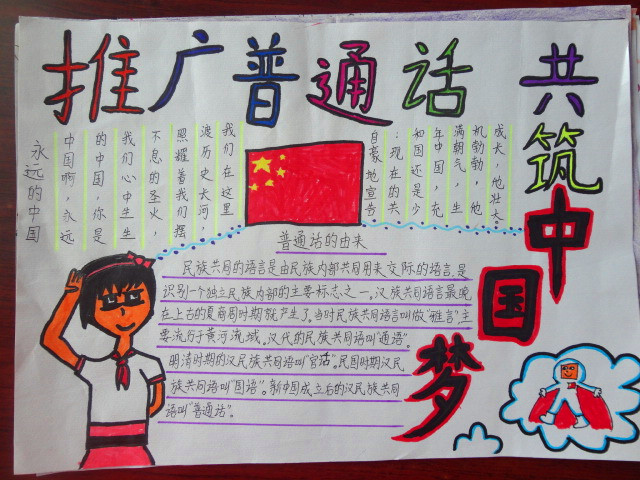 推广普通话
共筑中国梦
永远的中国
中国啊,永远
的中国 你是
我们心中生生
不息的圣火,
照耀着我们摆
渡历史长河,
我们在这里
自豪地宣告
:现在的共
如国还是少
年中国,充
满朝气,生
机勃勃,他
成长,他壮大。
普通话的由来
民族共同的语言是由民族内部共同用来交际的语言,是
识别一个独立民族内部的主要标志之一。汉族共同语言最晚
在上古的夏商周时期就产生了,当时民族共同语言叫做“雅言”,主
要流行于黄河流域。汉代的民族共同语叫“通语”。
明清时期的汉民族共同语叫“官话”。民国时期汉民
族共同语叫“国语”。新中国成立后的汉民族共同
语叫“普通话”。